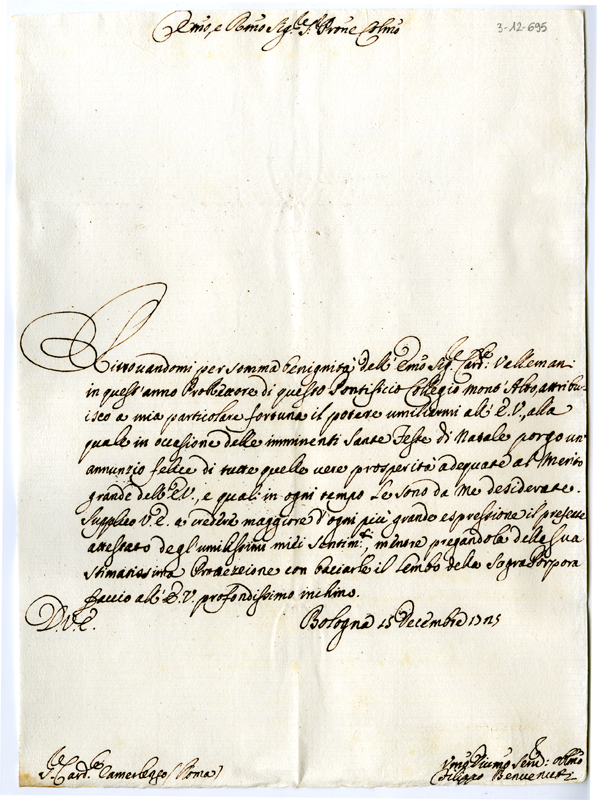 Emo, e Rmo Sigr. Sr. Prone Colmo
3-12-695
Ritrovandomi per somma benignità dell' Emo Sigr. Cardle: Velleman:
in quest'anno Prottettore di questo Pontificio Collegio Mont'Alto, attribu-
isco a mia particolare fortuna il potere umiliarmi all' E.V., alla
quale in occasione delle imminenti Sante Feste di Natale porgo un'
annunzio felice di tutte quelle vere prosperità adequate al Merito
grande dell' E.V., e quali in ogni tempo Le sono da Me desiderate.
Supplico V.E. a credere maggiore d'ogni più grande espressione il presente
attestato degl'umilissimi miei Sentimti, mentre pregandola della Sua
stimatissima Protezzione con baciarle il lembo della Sagra Porpora
faccio all' E.V. profondissimo inchino.
D.V.E.
Bologna 15 Decembre 1725
Sr. Cardle Camerlego (Roma)
Umo Divmo Serv: oblmo
Filippo Benvenuti